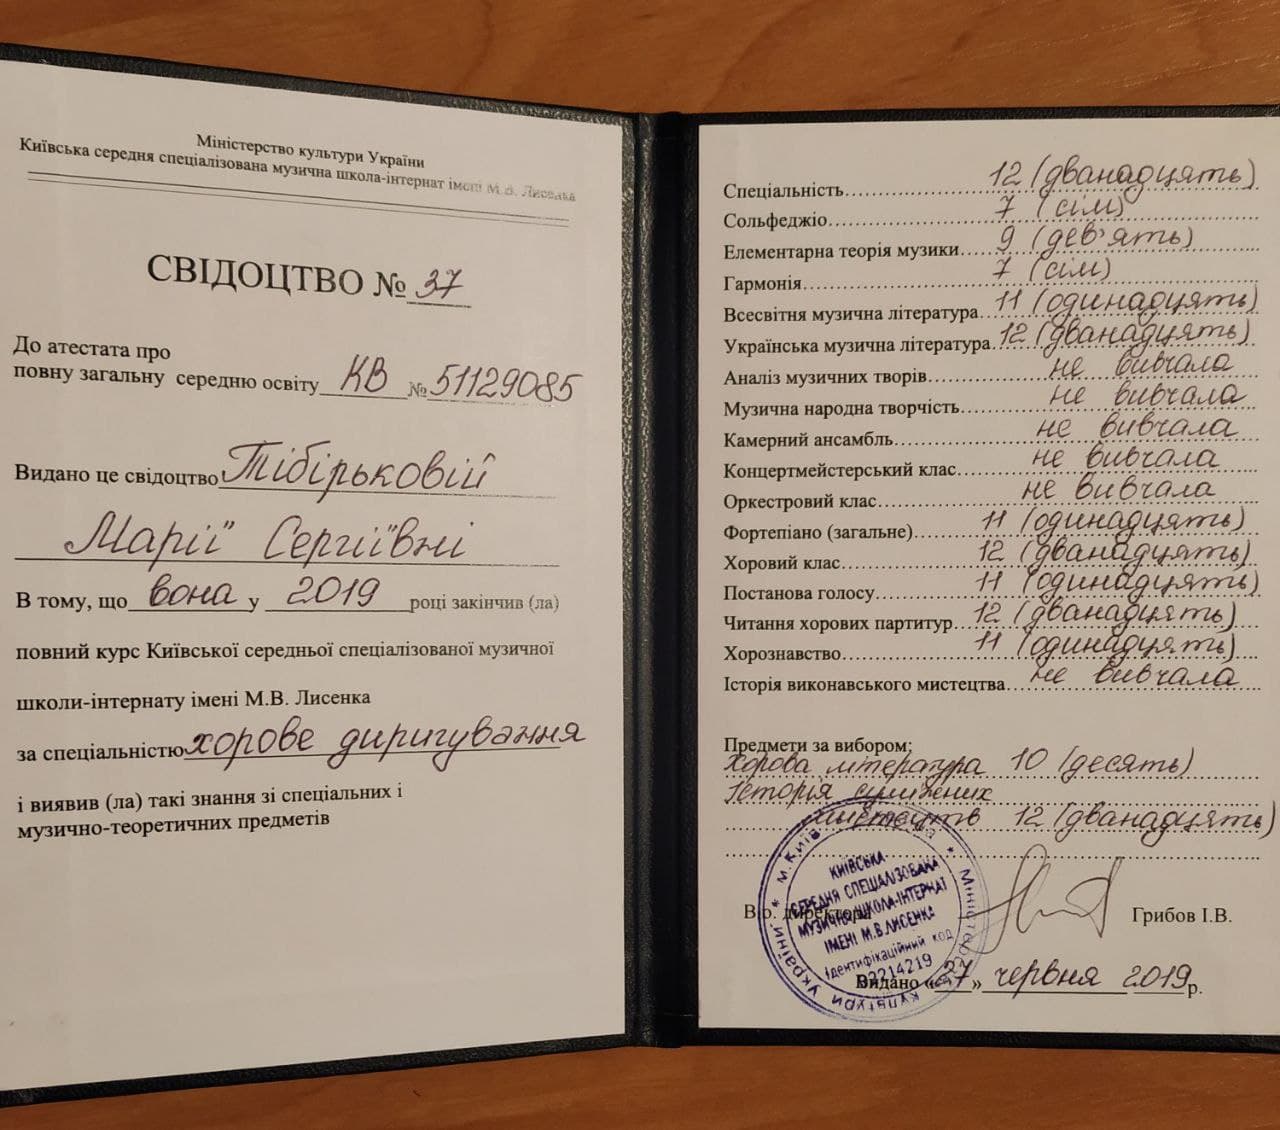 Міністерство культури України
Київська середня спеціалізована музична школа-інтернат імені М.В. Лисенка
СВІДОЦТВО № 37
До атестата про
повну загальну середню освіту КВ № 51129085
Видано це свідоцтво Тібірьковій
Марії Сергіївні
В тому, що вона у 2019 році закінчив (ла)
повний курс Київської середньої спеціалізованої музичної
школи-інтернату імені М.В. Лисенка
за спеціальністю хорове диригування
і виявив (ла) такі знання зі спеціальних і
музично-теоретичних предметів
Спеціальність 12 (дванадцять)
Сольфеджіо 7 (сім)
Елементарна теорія музики 9 (дев'ять)
Гармонія 7 (сім)
Всесвітня музична література 11 (одинадцять)
Українська музична література 12 (дванадцять)
Аналіз музичних творів не вивчала
Музична народна творчість не вивчала
Камерний ансамбль не вивчала
Концертмейстерський клас не вивчала
Оркестровий клас не вивчала
Фортепіано (загальне) 11 (одинадцять)
Хоровий клас 12 (дванадцять)
Постанова голосу 11 (одинадцять)
Читання хорових партитур 12 (дванадцять)
Хорознавство 11 (одинадцять)
Історія виконавського мистецтва не вивчала
Предмети за вибором:
хорова література 10 (десять)
Історія суміжних
мистецтв 12 (дванадцять)
В.о. директора Грибов І.В.
Видано «27» червня 2019р.
КИЇВСЬКА
СЕРЕДНЯ СПЕЦІАЛІЗОВАНА
МУЗИЧНА ШКОЛА-ІНТЕРНАТ
ІМЕНІ М.В.ЛИСЕНКА
Ідентифікаційний код
02214219
Міністерство культури України * м.Київ